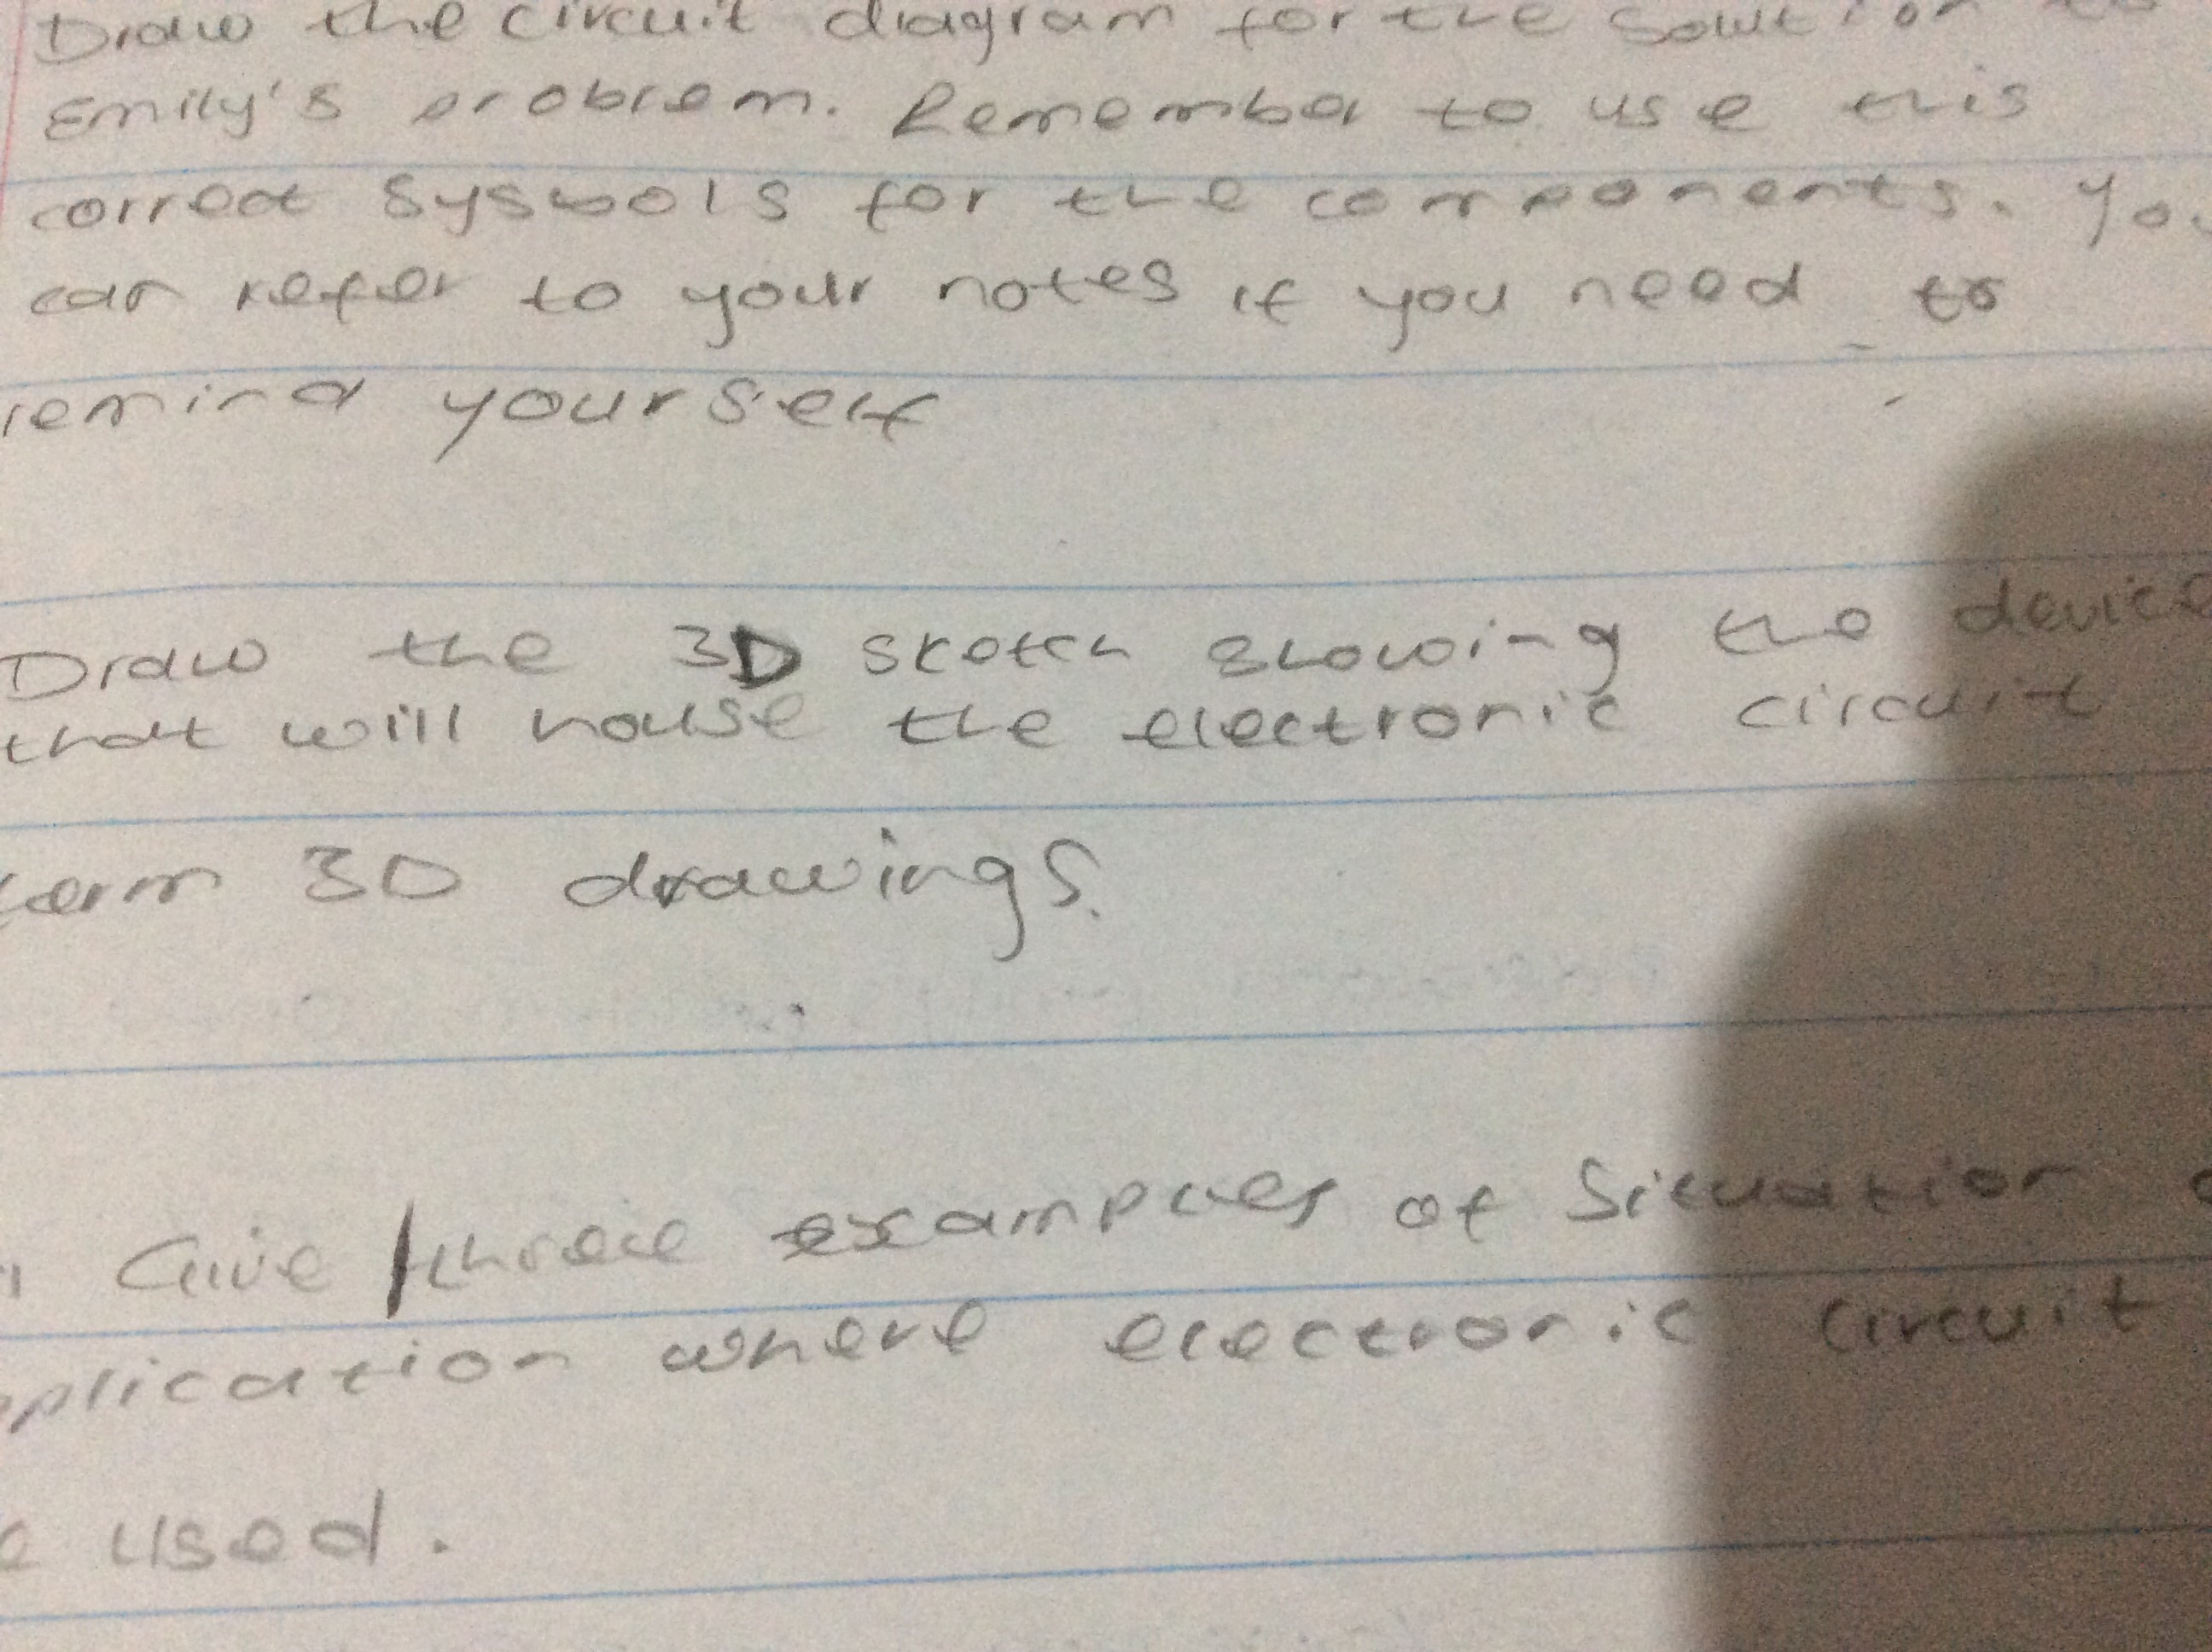 Draw the circuit diagram for the solution to
Emily's problem. Remember to use this
correct sysbols for the components. Yo
can refer to your notes if you need to
remind yourself
Draw the 3D sketch showing the device
that will house the electronic circuit
term 3D drawings.
Give three examples of situation
plication where electronic circuit
used.